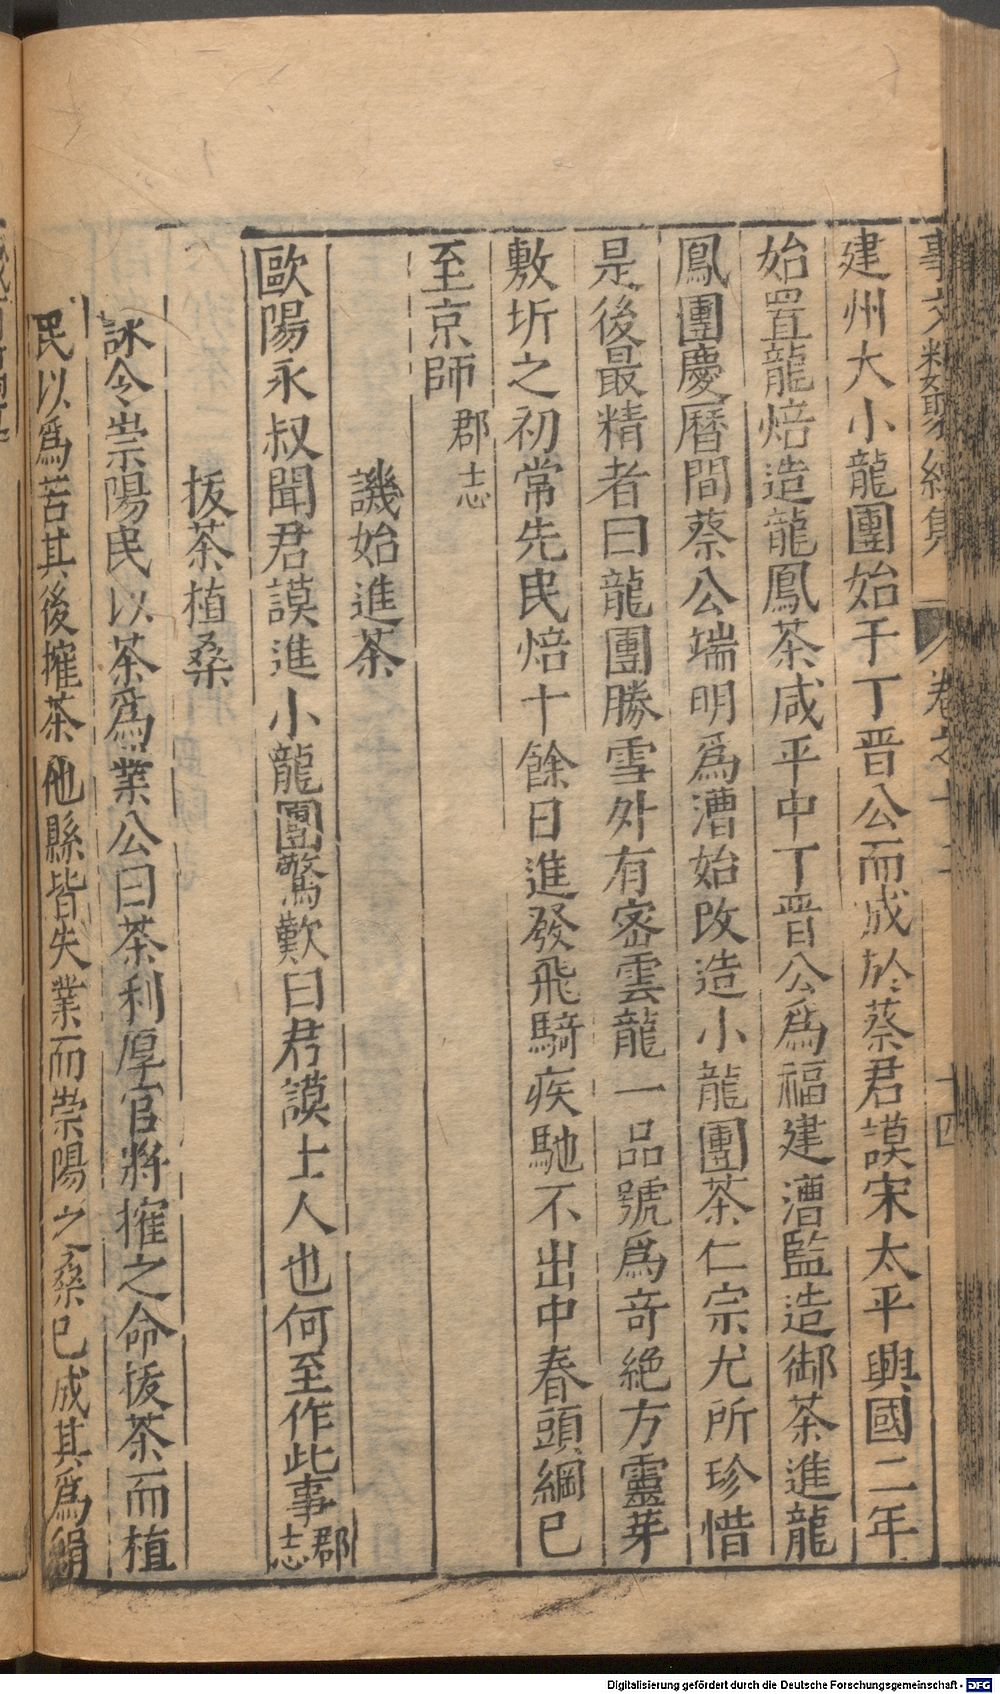 事文類聚續集 卷之十二 十四
建州大小龍團始于丁晉公而成於蔡君謨宋太平興國二年
始置龍焙造龍鳳茶咸平中丁晉公爲福建漕監造御茶進龍
鳳團慶曆間蔡公端明爲漕始改造小龍團茶仁宗尤所珍惜
是後最精者曰龍團勝雪外有密雲龍一品號爲奇絶方靈芽
敷坼之初常先民焙十餘日進發飛騎疾馳不出中春頭綱已
至京師 郡志
譏始進茶
歐陽永叔聞君謨進小龍團驚歎曰君謨士人也何至作此事 郡志
拔茶植桑
詠令崇陽民以茶爲業公曰茶利厚官將搉之命拔茶而植
民以爲苦其後搉茶他縣皆失業而崇陽之桑已成其爲絹
Digitalisierung gefördert durch die Deutsche Forschungsgemeinschaft - DFG